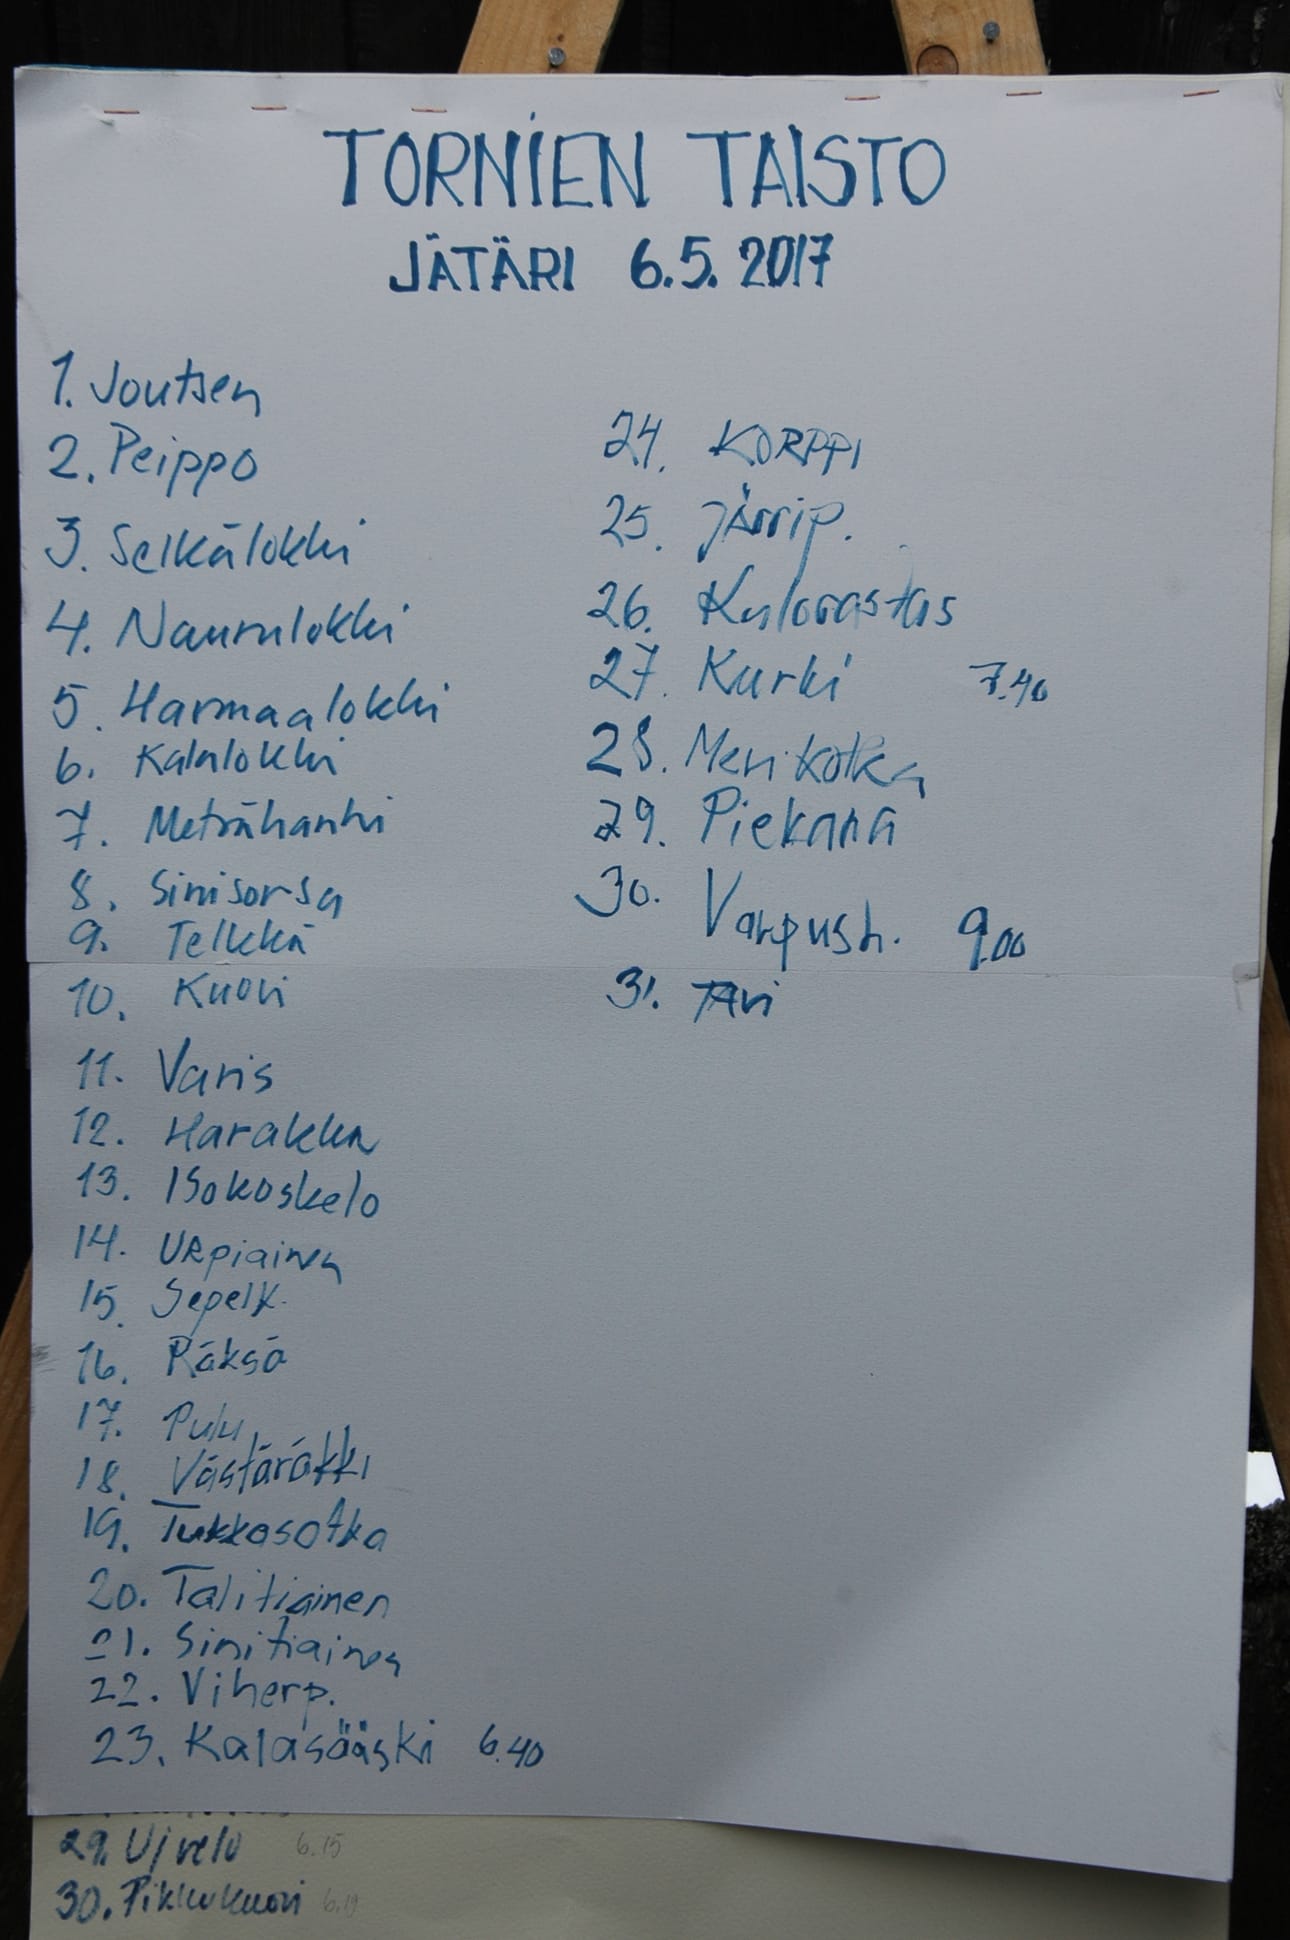 TORNIEN TAISTO
JÄTÄRI 6.5. 2017
1. Joutsen
2. Peippo
3. Selkälokki
4. Naurulokki
5. Harmaalokki
6. Kalalokki
7. Metsähanhi
8. Sinisorsa
9. Telkkä
10. Kuovi
11. Varis
12. Harakka
13. Isokoskelo
14. URpiainen
15. Sepelk.
16. Räksä
17. Pulu
18. Västäräkki
19. Tukkasotka
20. Talitiainen
21. Sinitiainen
22. Viherp.
23. Kalasääski 6.40
24. KORPPI
25. Järrip.
26. Kulorastas
27. Kurki 7.40
28. Merikotka
29. Piekana
30. Varpush. 9.00
31. TAvi
29. Ujvelo 6.15
30. Pikkukuovi 6.19